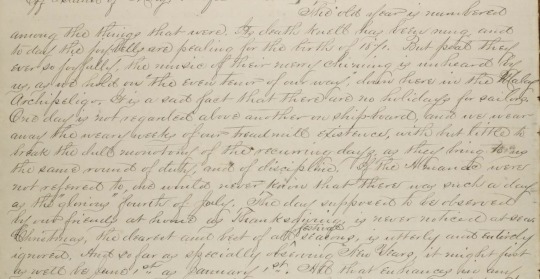 The old year is numbered
among the things that were. Its death knell has been rung and
to day the joybells are pealing for the birth of 1871. But peal they
ever so joyfully, the music of their merry chiming is unheard by
us, as we hold on "the even tenor of our way," down here in the Malay
Archipeligo. It is a sad fact that there are no holidays for sailors.
One day is not regarded above another on shipboard, and we wear
away the weary weeks of our treadmill existence, with but little to
break the dull monotony of the recurring days, as they bring to us
the same round of duty, and of discipline. If the Almanac were
not referred to, one would never know that there was such a day
as the glorious fourth of July. The day supposed to be observed
by our friends at home as Thanksgiving, is never noticed at sea.
Christmas, the dearest and best of all festival seasons, is utterly and entirely
ignored. And so far as specially observing New Years, it might just
as well be June 1st as January 1st. All that enhances our and